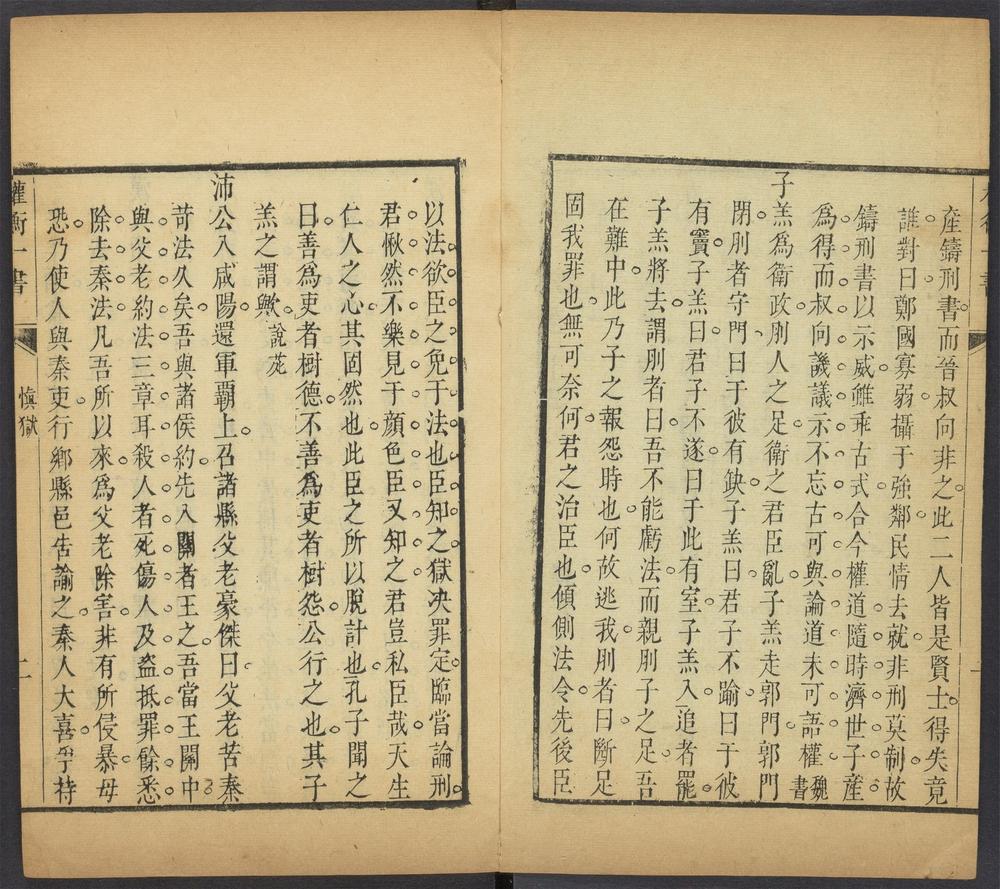 產鑄刑書而晉叔向非之此二人皆是賢士得失竟
誰對曰鄭國寡弱攝于強鄰民情去就非刑莫制故
鑄刑書以示威雖乖古式合今權道隨時濟世子產
爲得而叔向譏議示不忘古可與論道未可語權魏書
子羔爲衛政刖人之足衛之君臣亂子羔走郭門郭門
閉刖者守門曰于彼有缺子羔曰君子不踰曰于彼
有竇子羔曰君子不遂曰于此有室子羔入追者罷
子羔將去謂刖者曰吾不能虧法而親刖子之足吾
在難中此乃子之報怨時也何故逃我刖者曰斷足
固我罪也無可奈何君之治臣也傾側法令先後臣
以法欲臣之免于法也臣知之獄決罪定臨當論刑
君愀然不樂見于顏色臣又知之君豈私臣哉天生
仁人之心其固然也此臣之所以脫計也孔子聞之
曰善爲吏者樹德不善爲吏者樹怨公行之也其子
羔之謂歟說苑
沛公入咸陽還軍霸上召諸縣父老豪傑曰父老苦秦
苛法久矣吾與諸侯約先入關者王之吾當王關中
與父老約法三章耳殺人者死傷人及盜抵罪餘悉
除去秦法凡吾所以來爲父老除害非有所侵暴毋
恐乃使人與秦吏行鄉縣邑告諭之秦人大喜爭持
權衡一書
慎獄
二